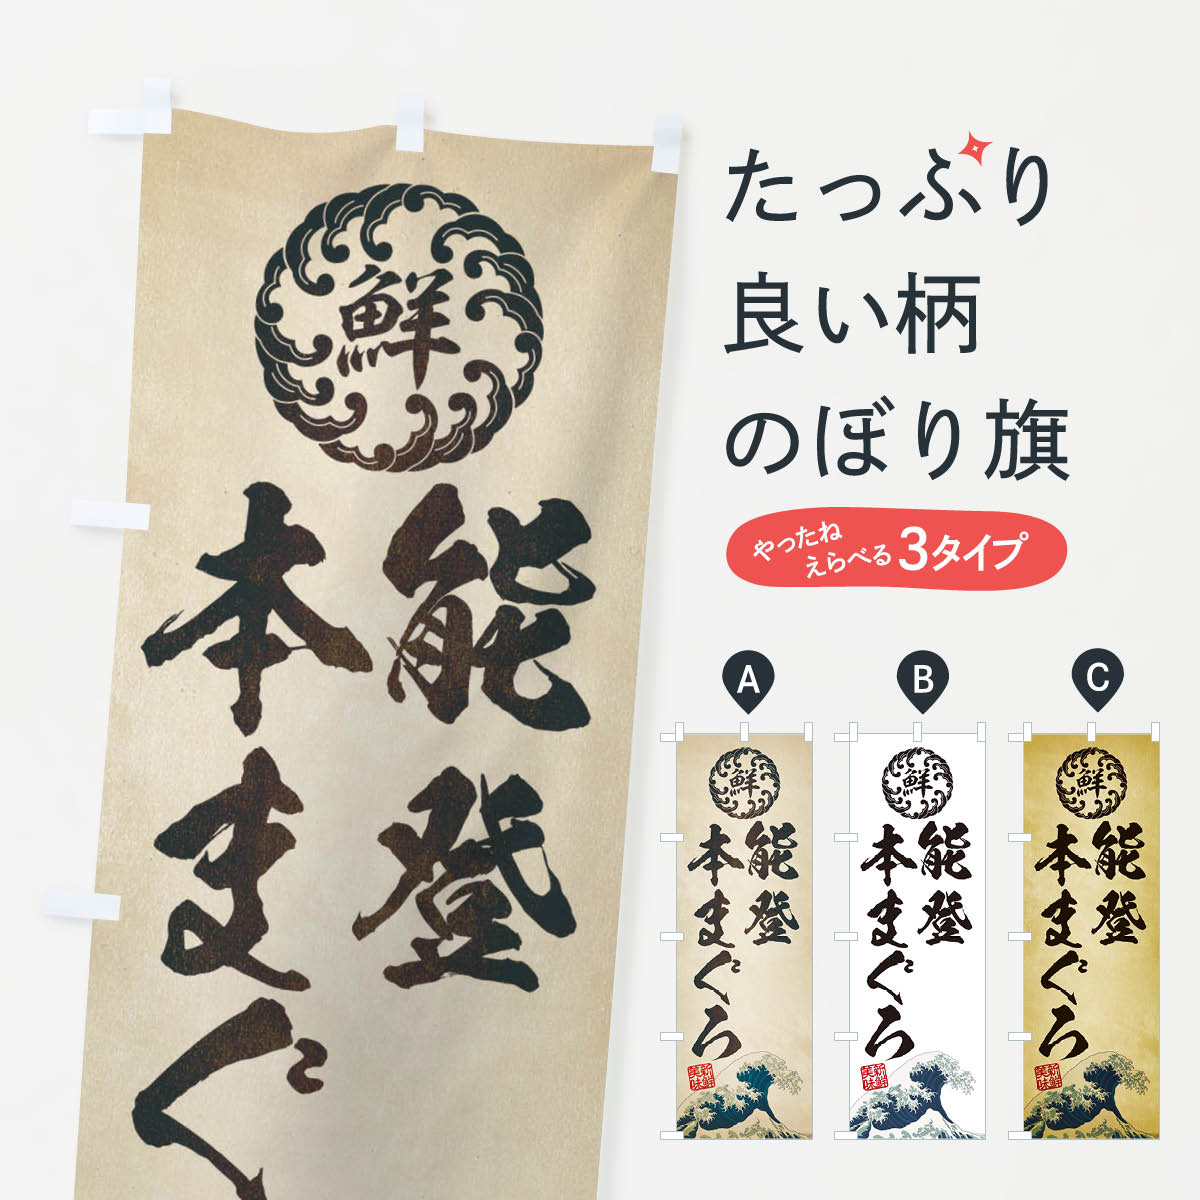 鮮
能登
本まぐ
たっぷり
良い柄
のぼり旗
やったね
えらべる
3タイプ
A
B
C
鮮
能登
本まぐろ
新鮮
美味
鮮
能登
本まぐろ
鮮
能登
本まぐろ
新鮮
美味